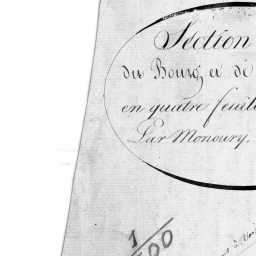 Section
du Bourg et de
en quatre feuil
Par Monoury.
1/
00